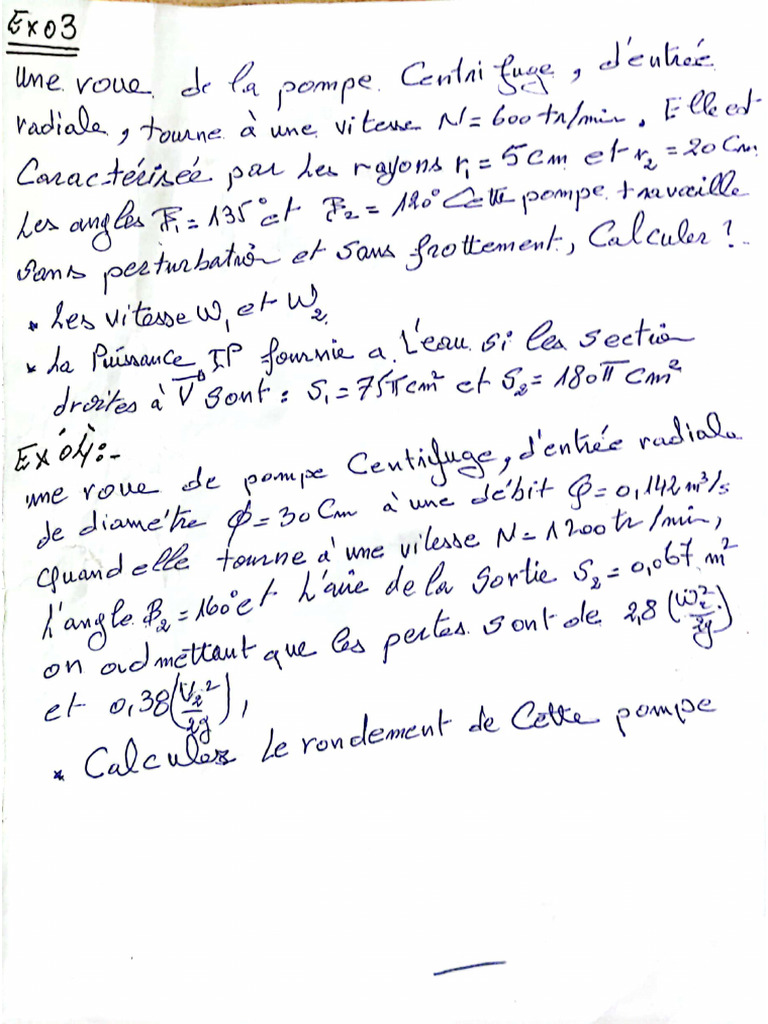 Ex 03
Une roue de la pompe Centrifuge, d'entrée
radiale, tourne à une vitesse N = 600 tr/min. Elle est
Caractérisée par les rayons r₁ = 5 cm et r₂ = 20 Cm
Les angles β₁ = 135° et β₂ = 120° Cette pompe travaille
sans perturbation et sans frottement, Calculer ?
* Les vitesse W₁ et W₂
* La Puissance IP fournie a L'eau si les section
droites à V sont : S₁ = 75π cm² et S₂ = 180π cm²
Ex 04:-
une roue de pompe Centrifuge, d'entrée radiale
de diamétre ϕ = 30 Cm à une débit φ = 0,142 m³/s
Quand elle tourne à une vitesse N = 1200 tr/min,
L'angle β₂ = 160° et L'aire de la sortie S₂ = 0,067 m²
on admettant que les pertes sont de 2,8 (W₂²/2g)
et 0,38 (V₂²/2g),
* Calculer le rondement de Cette pompe